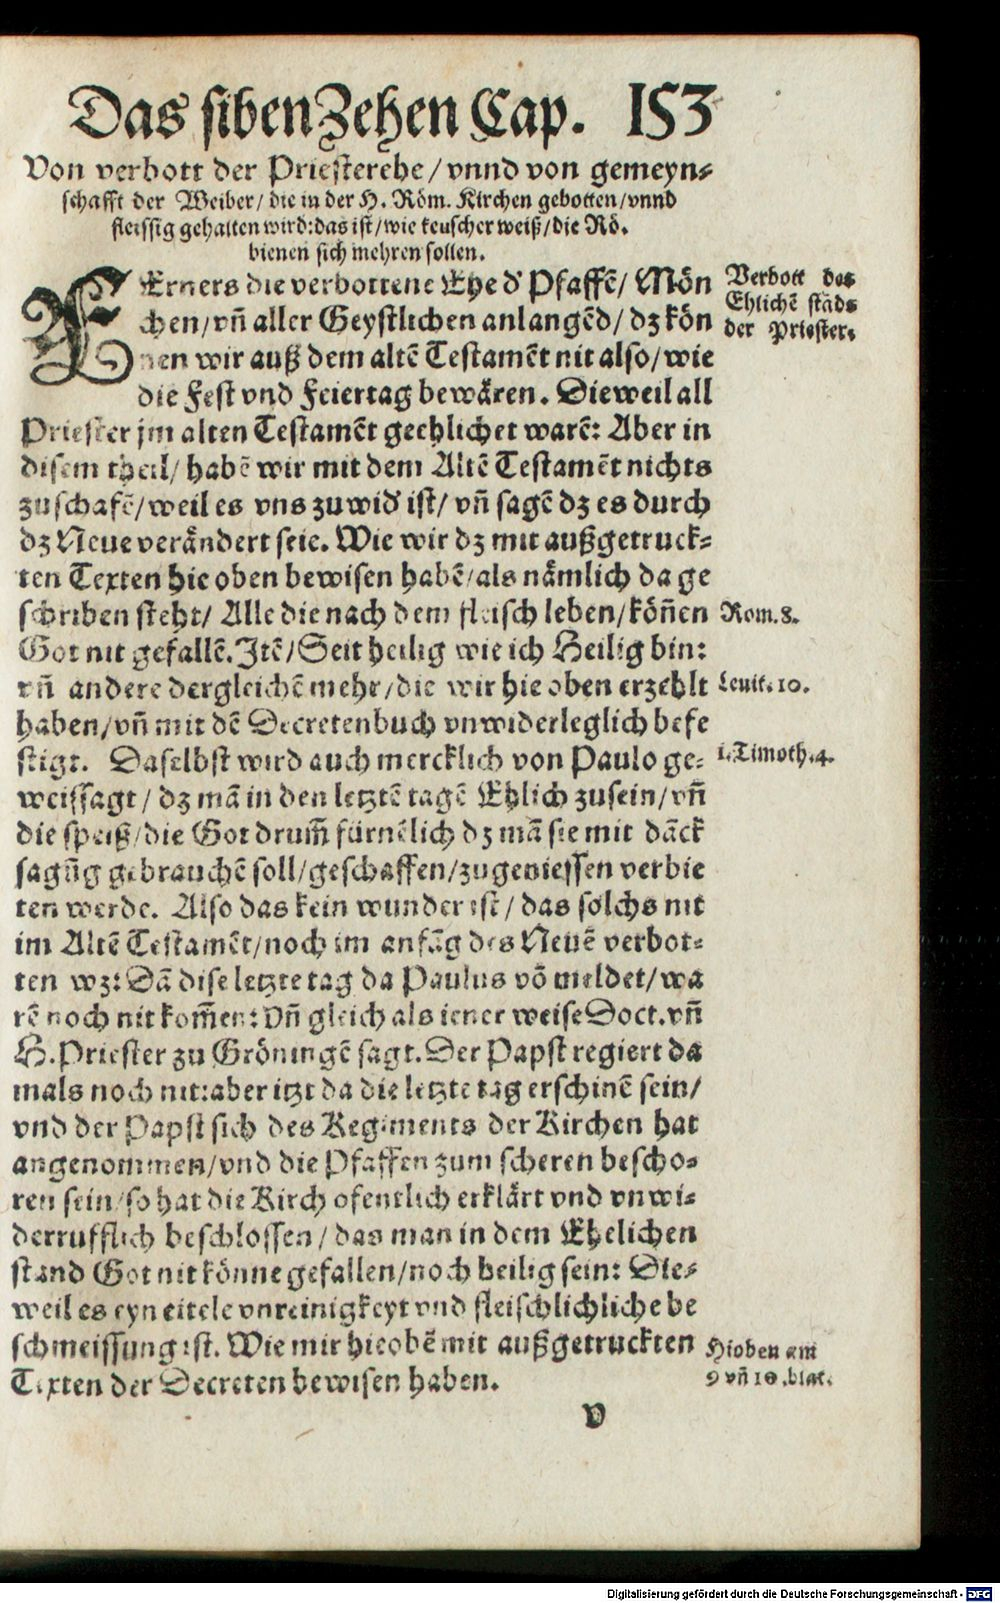 Das siben Zehen Cap. 153
Von verbott der Priesterehe / vnnd von gemeyn⸗
schafft der Weiber / die in der H. Röm. Kirchen gebotten / vnnd
fleissig gehalten wird: das ist / wie keuscher weiß / die Rö.
bienen sich mehren sollen.
FErners die verbottene Ehe d' Pfaffē / Mön
chen / vñ aller Geystlichen anlangēd / dz kön
nen wir auß dem altē Testamēt nit also / wie
die Fest vnd Feiertag bewären. Dieweil all
Priester jm alten Testamēt geehlichet warē: Aber in
disem theil / habē wir mit dem Altē Testamēt nichts
zuschafē / weil es vns zuwid' ist / vñ sagē dz es durch
dz Neue verändert seie. Wie wir dz mit außgetruck⸗
ten Texten hie oben bewisen habē / als nämlich da ge
schriben steht / Alle die nach dem fleisch leben / köñen
Got nit gefallē. Itē / Seit heilig wie ich Heilig bin:
vñ andere dergleichē mehr / die wir hie oben erzehlt
haben / vñ mit dē Decretenbuch vnwiderleglich befe
stigt. Daselbst wird auch mercklich von Paulo ge⸗
weissagt / dz mā in den letztē tagē Ehlich zusein / vñ
die speiß / die Got drum̃ fürnēlich dz mā sie mit dāck
sagūg gebrauchē soll / geschaffen / zugeniessen verbie
ten werde. Also das kein wunder ist / das solchs nit
im Altē Testamēt / noch im anfāg des Neuē verbot⸗
ten wz: Dā dise letzte tag da Paulus vō meldet / wa
rē noch nit kom̃en: Vñ gleich als iener weise Doct. vñ
H. Priester zu Gröningē sagt. Der Papst regiert da
mals noch nit: aber itzt da die letzte tag erschinē sein /
vnd der Papst sich des Regiments der Kirchen hat
angenommen / vnd die Pfaffen zum scheren bescho⸗
ren sein / so hat die Kirch ofentlich erklärt vnd vnwi⸗
derrufflich beschlossen / das man in dem Ehelichen
stand Got nit könne gefallen / noch heilig sein: Die⸗
weil es eyn eitele vnreinigkeyt vnd fleischlichliche be
schmeissung ist. Wie mir hieobē mit außgetruckten
Texten der Decreten bewisen haben.
V
Verbott des
Ehlichē stāds
der Priester.
Rom. 8.
Leuit. 10.
1. Timoth. 4.
Hioben am
9 vñ 10. blat.
Digitalisierung gefördert durch die Deutsche Forschungsgemeinschaft - DFG